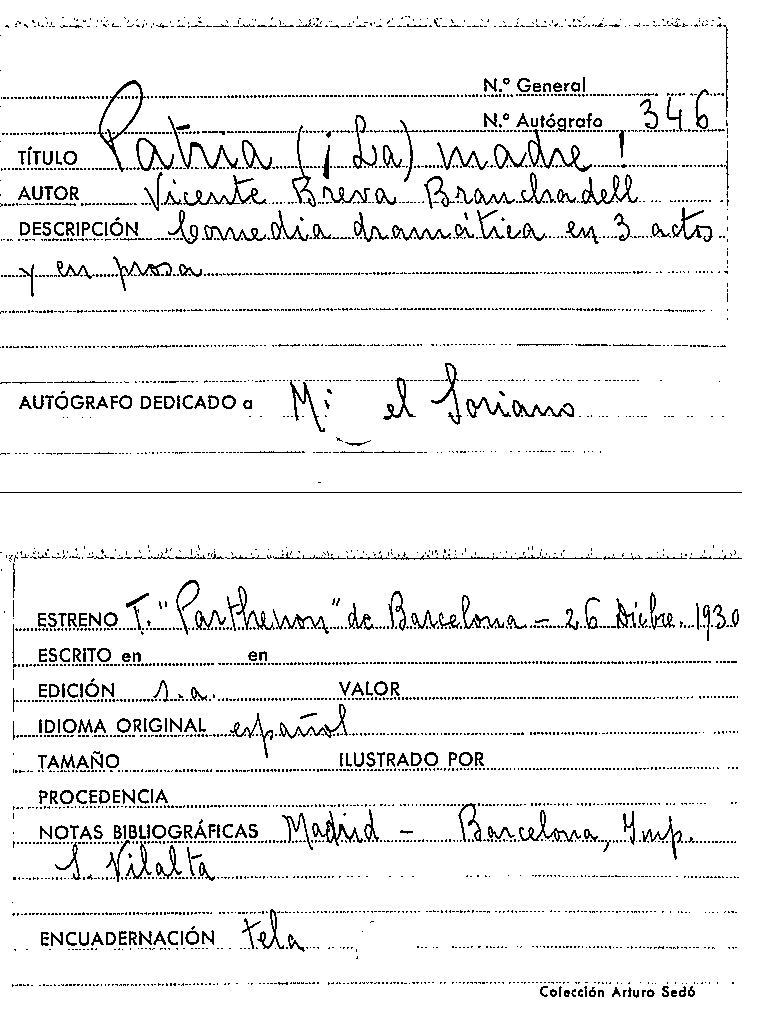 N.º General
N.º Autógrafo 346
TÍTULO Patria (¡La) madre!
AUTOR Vicente Breva Branchadell
DESCRIPCIÓN Comedia dramática en 3 actos
y en prosa
AUTÓGRAFO DEDICADO a el Soriano
ESTRENO T. "Parthenon" de Barcelona - 26 Dicbre. 1930
ESCRITO en en
EDICIÓN s.a. VALOR
IDIOMA ORIGINAL español
TAMAÑO ILUSTRADO POR
PROCEDENCIA
NOTAS BIBLIOGRÁFICAS Madrid - Barcelona, Imp.
S. Vilalta
ENCUADERNACIÓN tela
Colección Arturo Sedó